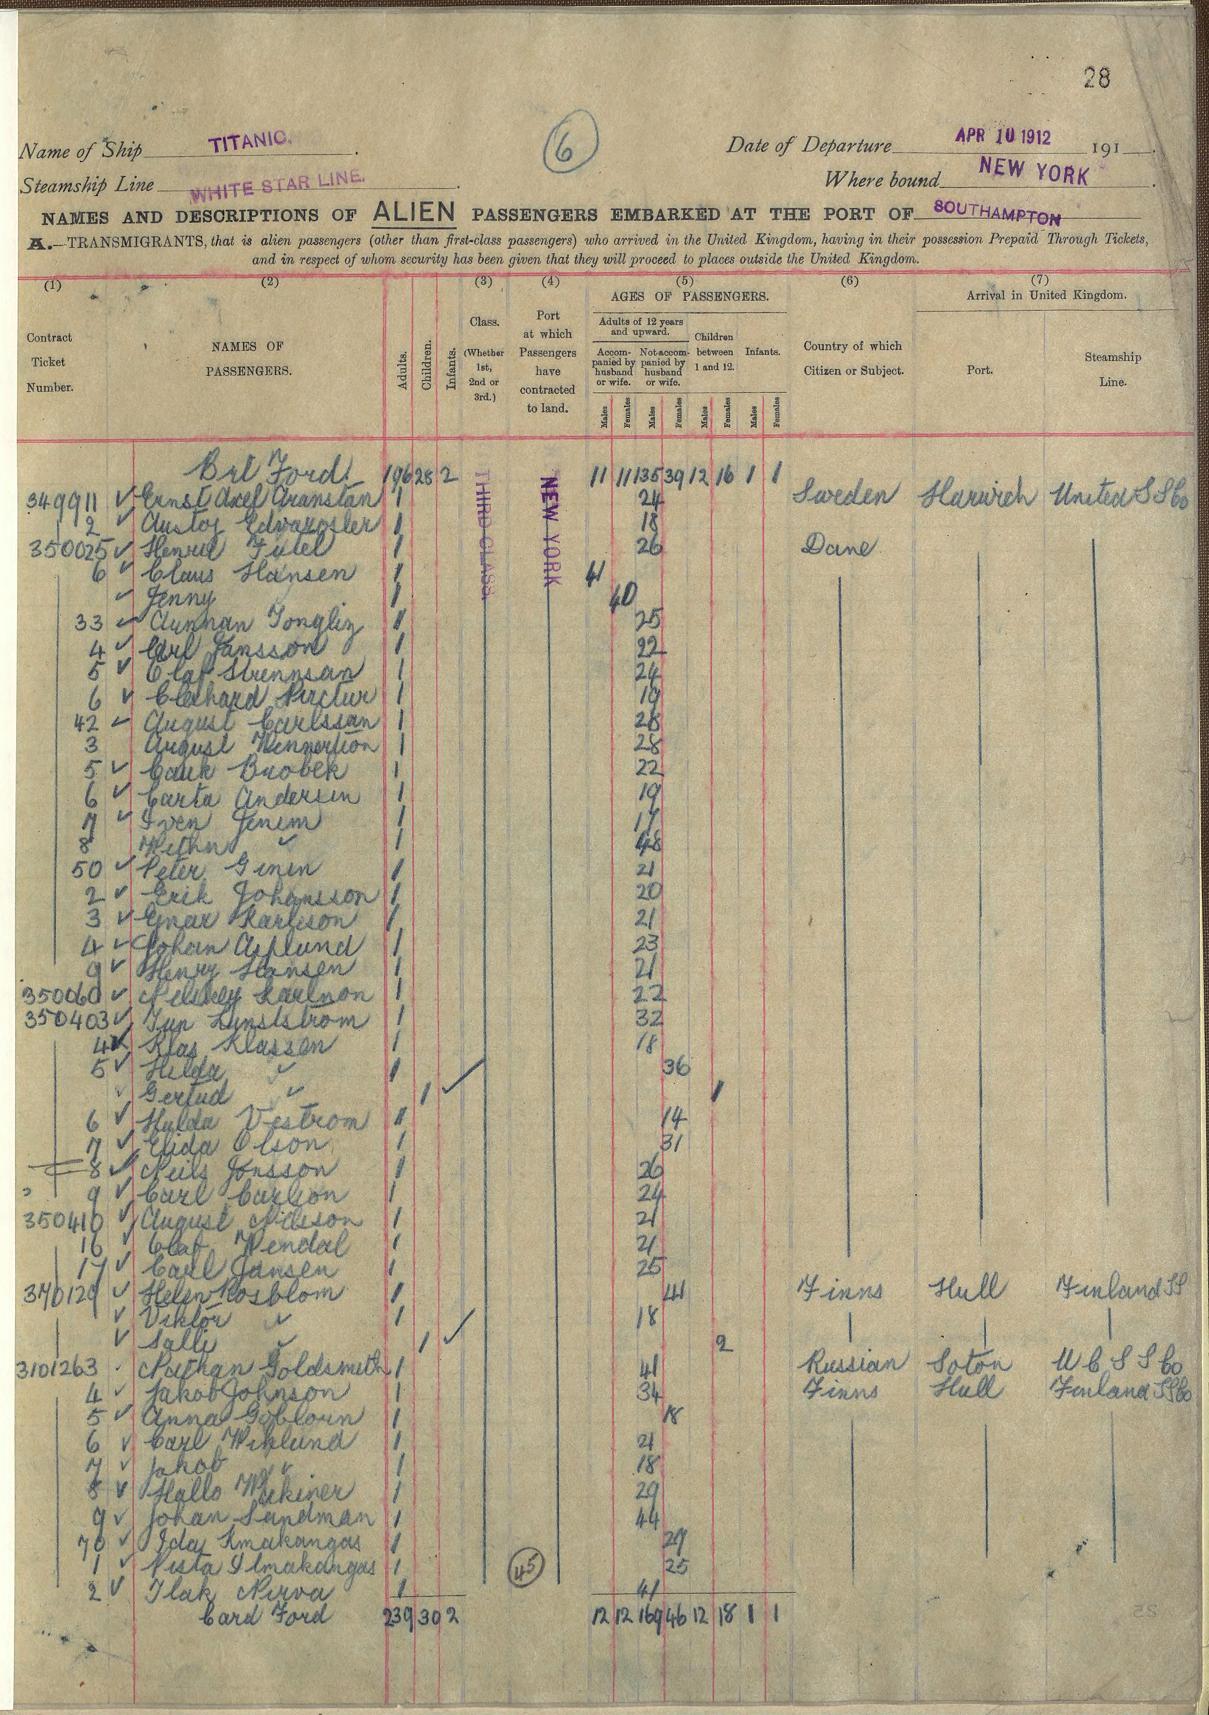 28
6
Name of Ship TITANIC. Date of Departure APR 10 1912 191
Steamship Line WHITE STAR LINE. Where bound NEW YORK
NAMES AND DESCRIPTIONS OF ALIEN PASSENGERS EMBARKED AT THE PORT OF SOUTHAMPTON
A.—TRANSMIGRANTS, that is alien passengers (other than first-class passengers) who arrived in the United Kingdom, having in their possession Prepaid Through Tickets,
and in respect of whom security has been given that they will proceed to places outside the United Kingdom.
(1) (2) (3) (4) (5) (6) (7)
Contract Ticket Number.
NAMES OF PASSENGERS.
Adults. Children. Infants.
Class. (Whether 1st, 2nd or 3rd.)
Port at which Passengers have contracted to land.
AGES OF PASSENGERS.
Adults of 12 years and upward.
Accompanied by husband or wife. Not accompanied by husband or wife.
Children between 1 and 12.
Infants.
Males Females Males Females Males Females Males Females
Country of which Citizen or Subject.
Arrival in United Kingdom.
Port. Steamship Line.
THIRD CLASS.
NEW YORK
Brt Ford 196 28 2 11 11 135 39 12 16 1 1
349911 Ernst Axel 1 24 Sweden Harwich United SS Co
2 1 18
350025 1 26 Dane
6 Claus Hansen 1 41
Jenny 1 40
33 1 25
4 Carl Jansson 1 22
5 Olaf 1 24
6 1 19
42 August Carlssan 1 28
3 August 1 28
5 1 22
6 Carta Andersen 1 19
7 1 17
8 " 1 48
50 Peter 1 21
2 Erik Johansson 1 20
3 Einar Karlson 1 21
4 Johan Asplund 1 23
9 Henry Hansen 1 21
350060 1 22
350403 1 32
4 Klas Klassen 1 18
5 Hilda " 1 36
Gertud " 1 1
6 Hulda Vestrom 1 14
7 Elida Olson 1 31
8 Neils Jonsson 1 26
9 Carl Carlson 1 24
350410 August Nilsson 1 21
16 Olaf Wendal 1 21
17 Carl Jansen 1 25
370129 Helen Rosblom 1 41 Finns Hull Finland SS
Viktor " 1 18
Salli " 1 2
3101263 Nathan Goldsmith 1 41 Russian Soton U C S S Co
4 Jakob Johnson 1 34 Finns Hull Finland SS Co
5 Anna 1 18
6 Carl Wiklund 1 21
7 Jakob " 1 18
8 Hallo 1 29
9 Johan Sandman 1 44
70 Ida 1 29
1 Pista Ilmakangas 1 25
2 1 41
45
Card Ford 239 30 2 12 12 169 46 12 18 1 1